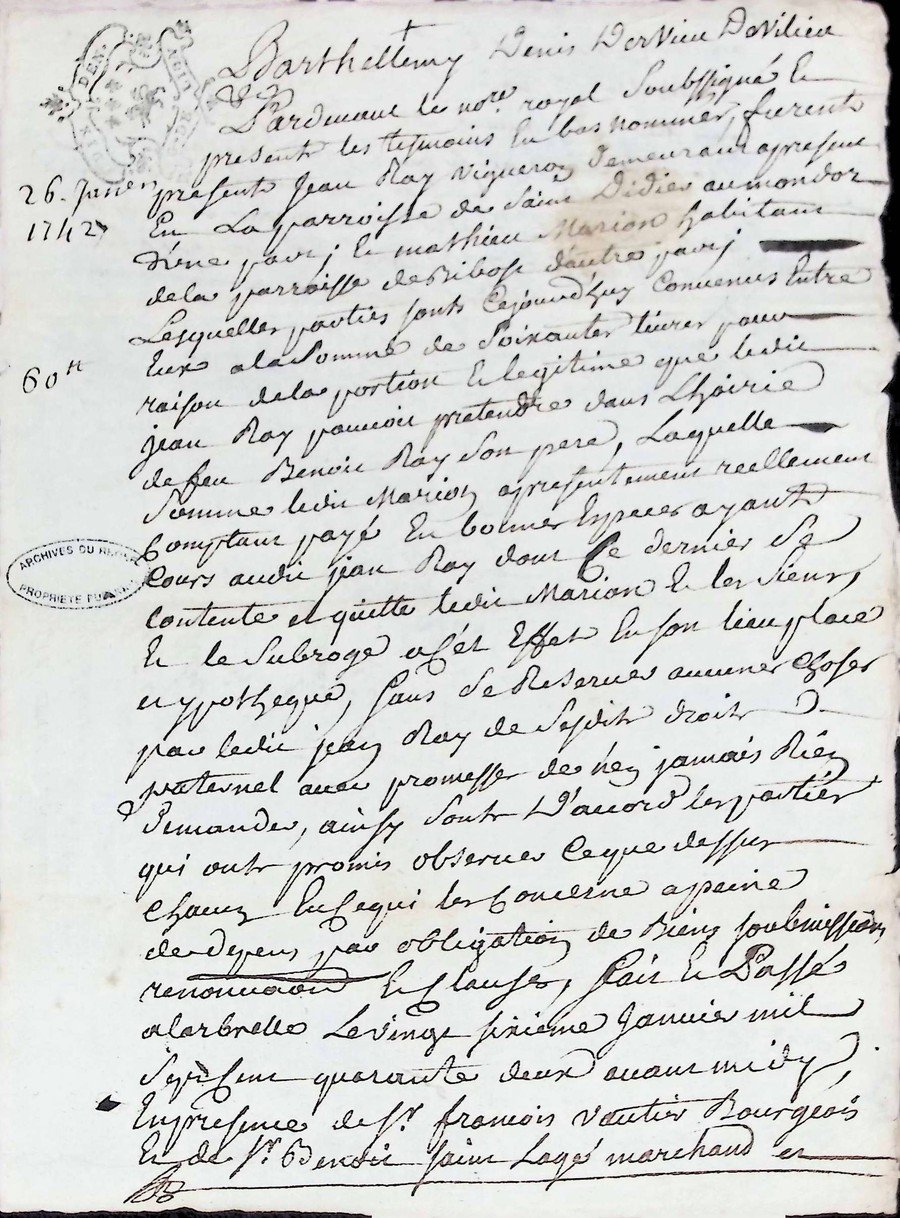 Barthellemy Denis Dervieu Devilieu
Pardevant le no.re royal Soubssigné Et
presents les tesmoins En bas nommes, furent
26. Janvier
1742
presents Jean Ray vigneron demeurant apresent
En La parroisse de Saint Didier aumondor
d'une part, Et mathieu Marion habitant
dela parroisse de Bibost d'autre part,
Lesquelles parties sonts Cejourd'huy Convenues Entre
60 tt
Eux ala Somme de Soixantes livres pour
raison dela portion Et legitime que ledit
jean Ray pouvoit pretendre dans Lhoirie
de feu Benoit Ray Son pere, Laquelle
Somme ledit Marion apresentement reellement
Comptant payé En bonnes Especes ayants
ARCHIVES DU
PROPRIETE PU
Cours audit jean Ray dont Ce dernier Se
contente et quitte ledit Marion Et les Siens,
Et le Subroge a Cét Effet En son lieu place
et ypotheque, sans Se Reserver aucunes Choses
par ledit jean Ray de Sesdits droits
paternel avec promesses de n'en jamais Rien
demander, ainsy Sonts D'accord les parties
qui onts promis observer Ceque dessus
chacun En Cequi les Concerne a peine
de depens par obligation de Biens soubmissions
renonciation Et Clauses, fait Et Passé
alarbrelle Le vingt sixieme Janvier mil
Septcent quarante deux avant midy,
En presence de Sr. francois vautier Bourgeois
Et de Sr. Benoit saint Lagé marchand et